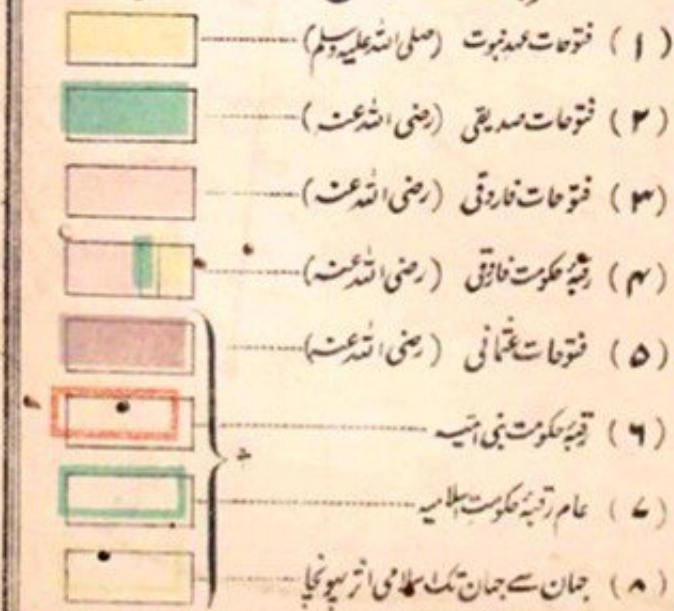 (۱) فتوحات عہد نبوت (صلی اللہ علیہ وسلم)
(۲) فتوحات صدیقی (رضی اللہ عنہ)
(۳) فتوحات فاروقی (رضی اللہ عنہ)
(۴) رقبۂ حکومت فاروقی (رضی اللہ عنہ)
(۵) فتوحات عثمانی (رضی اللہ عنہ)
(۶) رقبۂ حکومت بنی امیہ
(۷) عام رقبۂ حکومت اسلامیہ
(۸) جہان سے جہان تک اسلامی اثر پہونچا